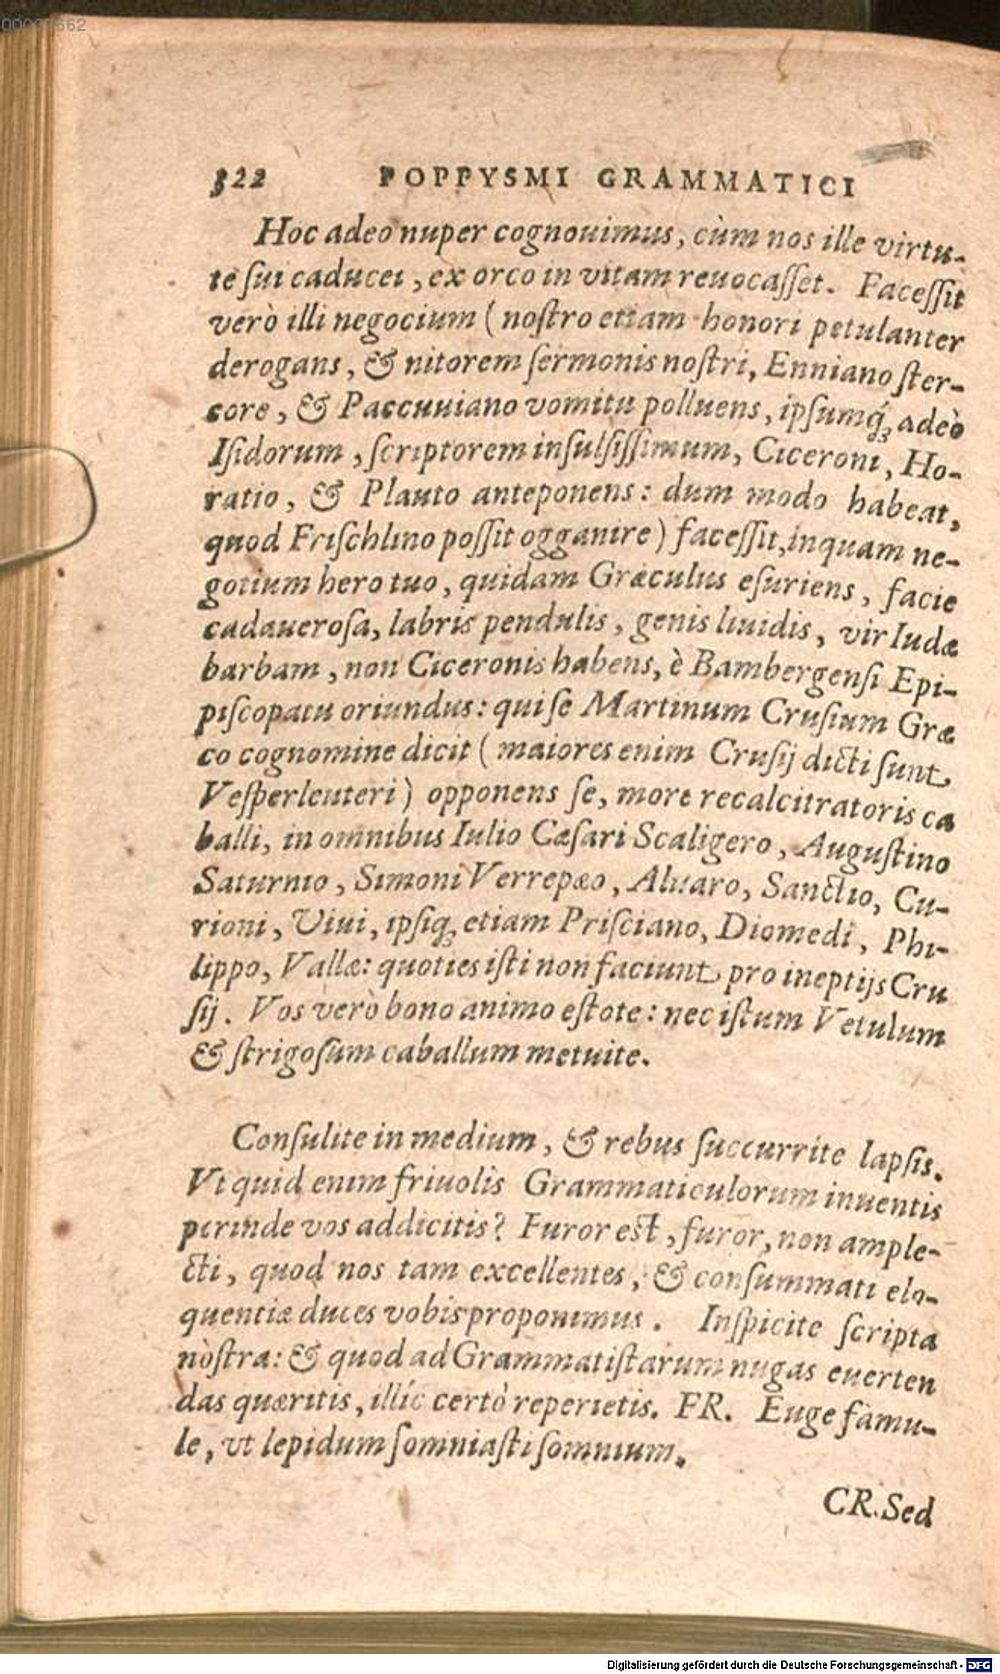 322 POPPYSMI GRAMMATICI
Hoc adeo nuper cognouimus, cùm nos ille virtu-
te sui caducei, ex orco in vitam reuocasset. Facessit
verò illi negocium (nostro etiam honori petulanter
derogans, & nitorem sermonis nostri, Enniano ster-
core, & Paccuuiano vomitu polluens, ipsumq́; adeò
Isidorum, scriptorem insulsissimum, Ciceroni, Ho-
ratio, & Plauto anteponens: dum modo habeat,
quod Frischlino possit ogganire) facessit, inquam ne-
gotium hero tuo, quidam Græculus esuriens, facie
cadauerosa, labris pendulis, genis liuidis, vir Iudæ
barbam, non Ciceronis habens, è Bambergensi Epi-
piscopatu oriundus: qui se Martinum Crusium Græ
co cognomine dicit (maiores enim Crusij dicti sunt,
Vesperleuteri) opponens se, more recalcitratoris ca
balli, in omnibus Iulio Cæsari Scaligero, Augustino
Saturnio, Simoni Verrepæo, Aluaro, Sanctio, Cu-
rioni, Viui, ipsiq; etiam Prisciano, Diomedi, Phi-
lippo, Vallæ: quoties isti non faciunt pro ineptijs Cru
sij. Vos verò bono animo estote: nec istum Vetulum
& strigosum caballum metuite.
Consulite in medium, & rebus succurrite lapsis.
Vt quid enim friuolis Grammaticulorum inuentis
perinde vos addicitis? Furor est, furor, non ample-
cti, quod nos tam excellentes, & consummati elo-
quentiæ duces vobis proponimus. Inspicite scripta
nostra: & quod ad Grammatistarum nugas euerten
das quæritis, illíc certò reperietis. FR. Euge famu-
le, vt lepidum somniasti somnium.
CR. Sed
Digitalisierung gefördert durch die Deutsche Forschungsgemeinschaft - DFG